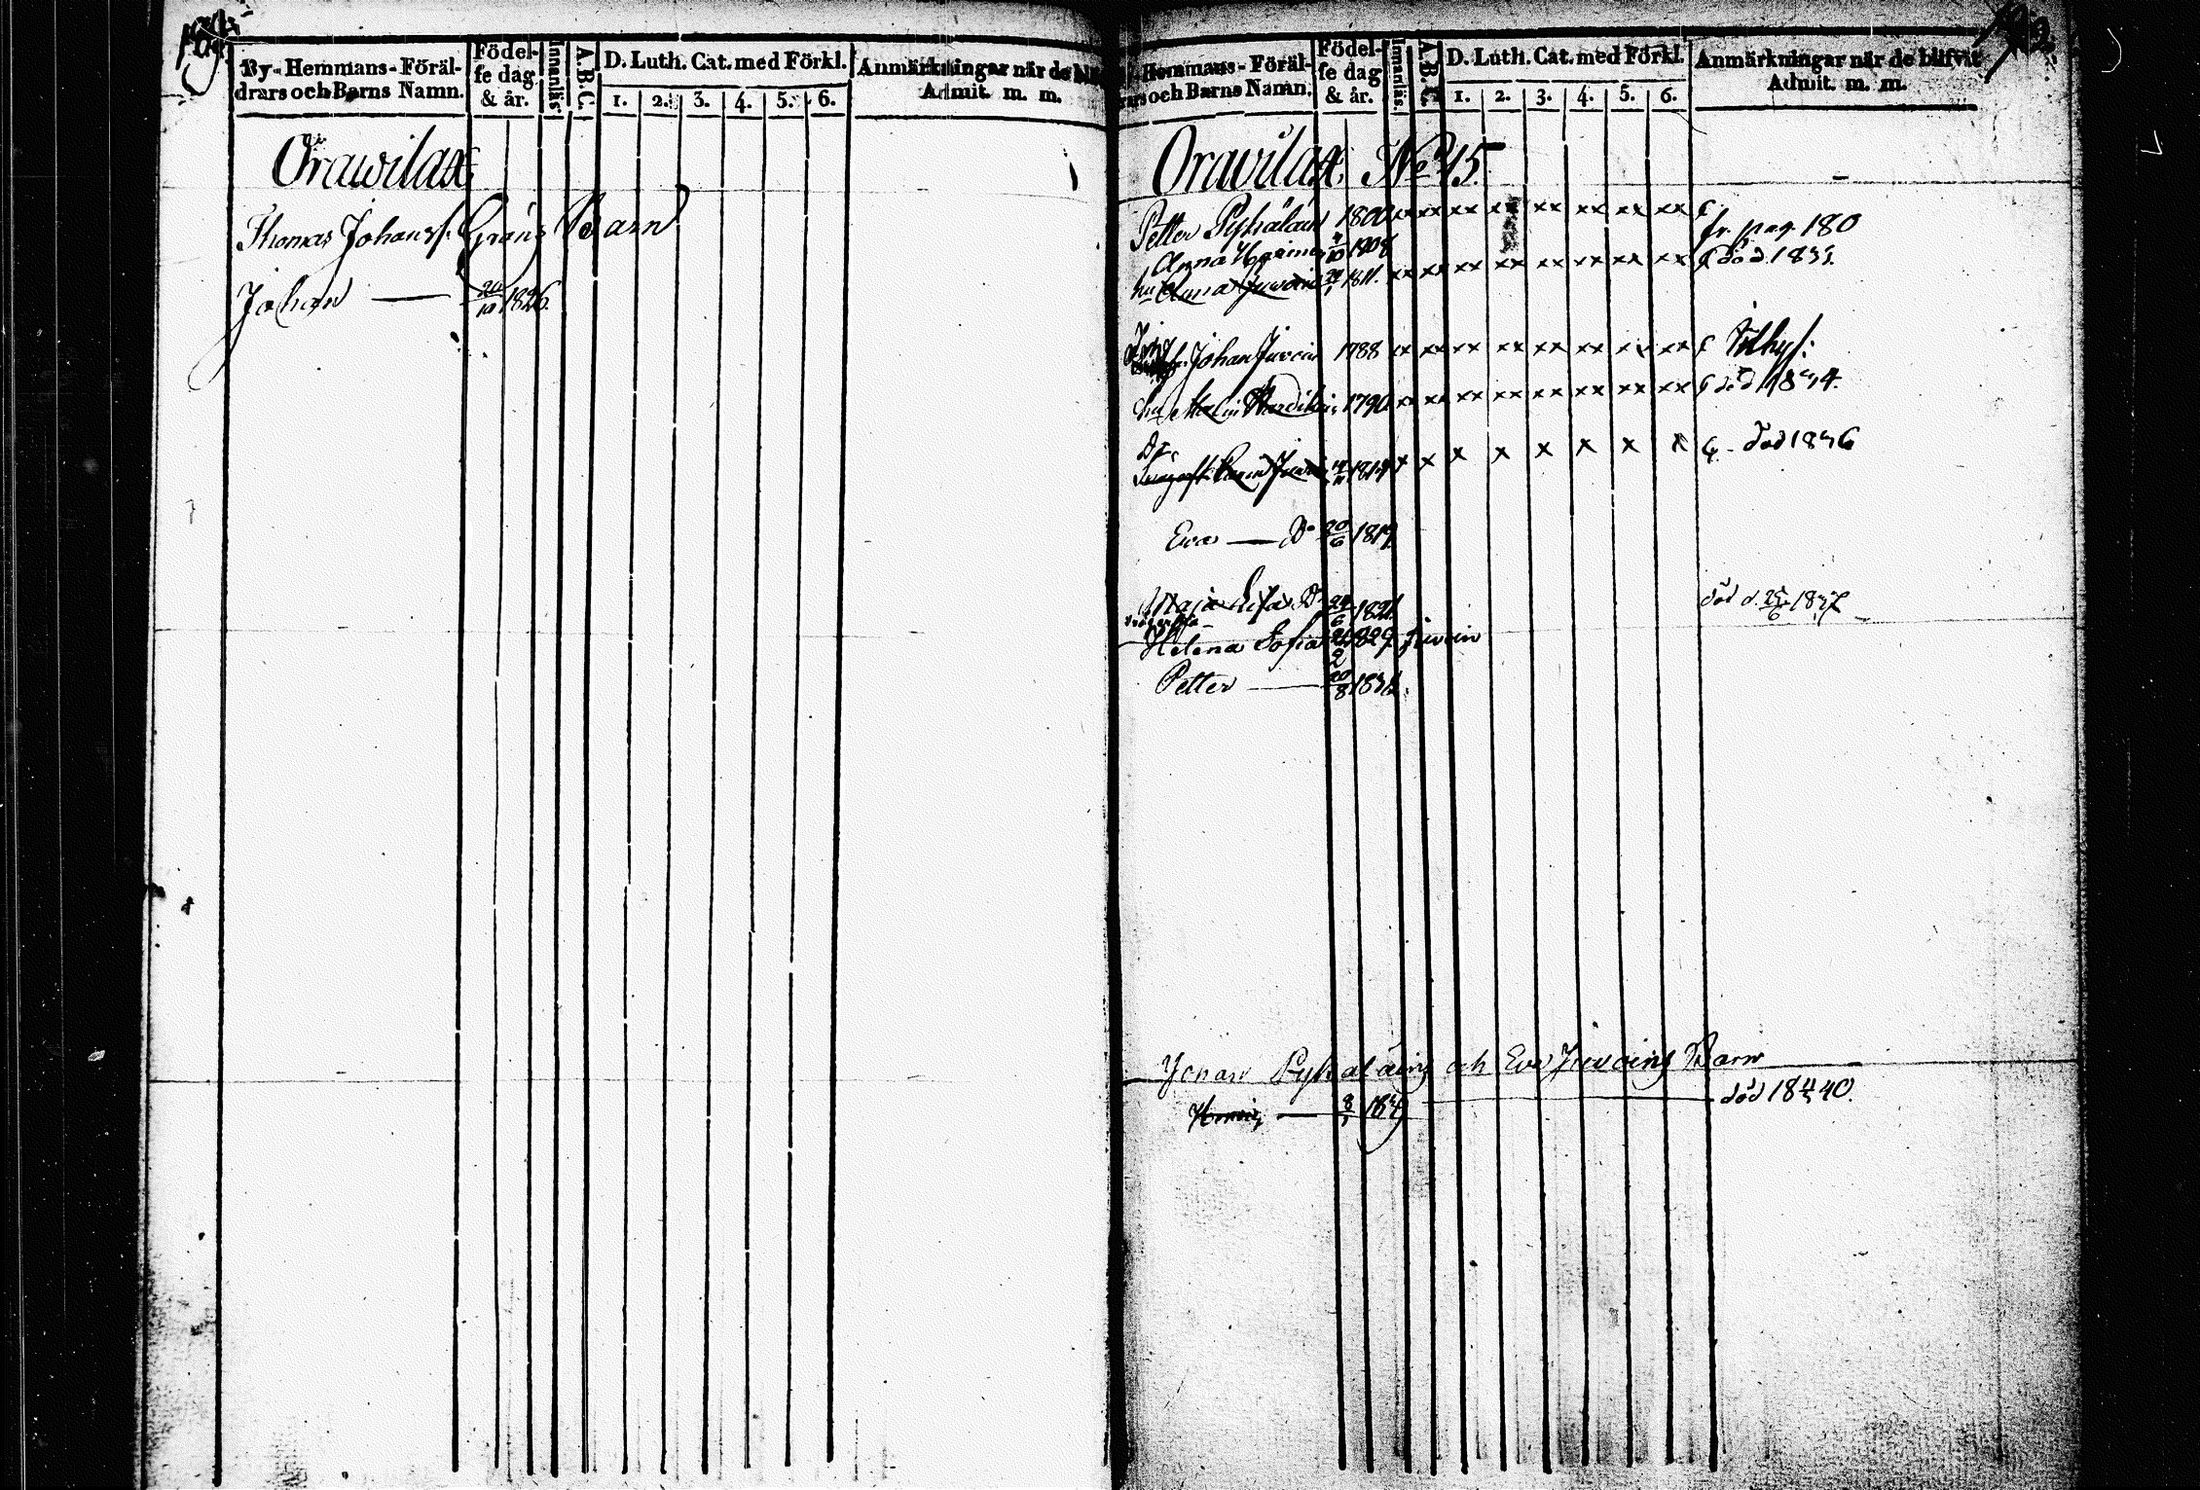 Pag.
By-Hemmans-Föräl-
drars och Barns Namn.
Födel-
se dag
& år.
Innanläs.
A.B.C.
D. Luth. Cat. med Förkl.
1. 2. 3. 4. 5. 6.
Anmärkningar när de bli
Admit. m. m.
Orawilax
Thomas Johanss. Gråns Barn
Johan — 20/10 1826.
-Hemmans-Föräl-
rars och Barns Namn.
Födel-
se dag
& år.
Innanläs.
A.B.C.
D. Luth. Cat. med Förkl.
1. 2. 3. 4. 5. 6.
Anmärkningar när de blifvit
Admit. m. m.
Orawilax, No 15.
Petter Pyhäläin 1800 xx xx xx xx xx xx xx
fr. pag. 180
Anna 1808
hu Anna Juvain 1811. xx xx xx xx xx xx xx xx död 1835.
Johan Juvain 1788 xx xx xx xx xx xx xx xx
hu Malin 1790 xx xx xx xx xx xx xx xx död 1834.
Dr
x x x x x x x x död 1836
Eva — Dr 20/6 1819.
Maja Lisa Dr 24/6 1821. död d. 25/6 1837
Helena Sofia 1829 Juvain
Petter — 20/8 183
Johan Pyhäläins och Eva Juvains Barn
8/1 1839 — död 18 40.